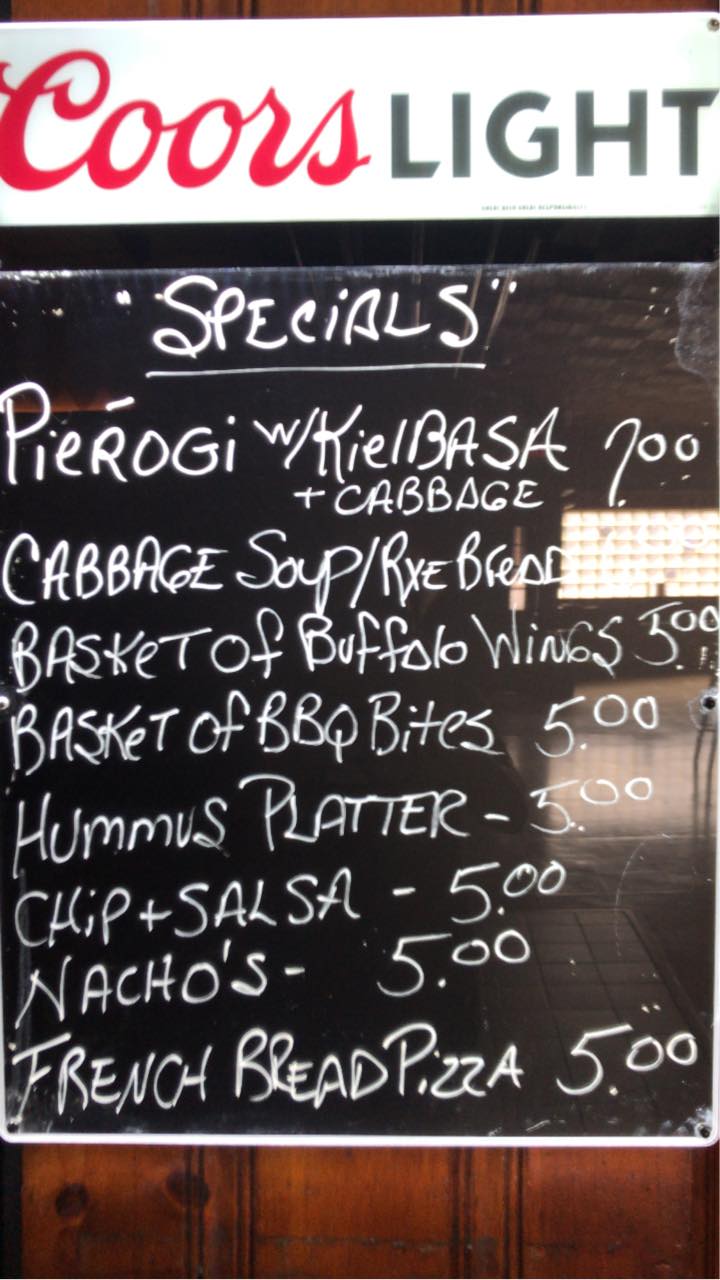 Coors LIGHT
GREAT BEER GREAT RESPONSIBILITY
"SPECiALS"
PieROGi w/KielBASA 7.00
+ CABBAGE
CABBAGE Soup/RyE BreAD
BASKeT of Buffalo WiNGS 5.00
BASKeT of BBQ Bites 5.00
HummuS PLATTER - 5.00
CHiP + SALSA - 5.00
NACHO'S - 5.00
FRENCH BREAD PizzA 5.00